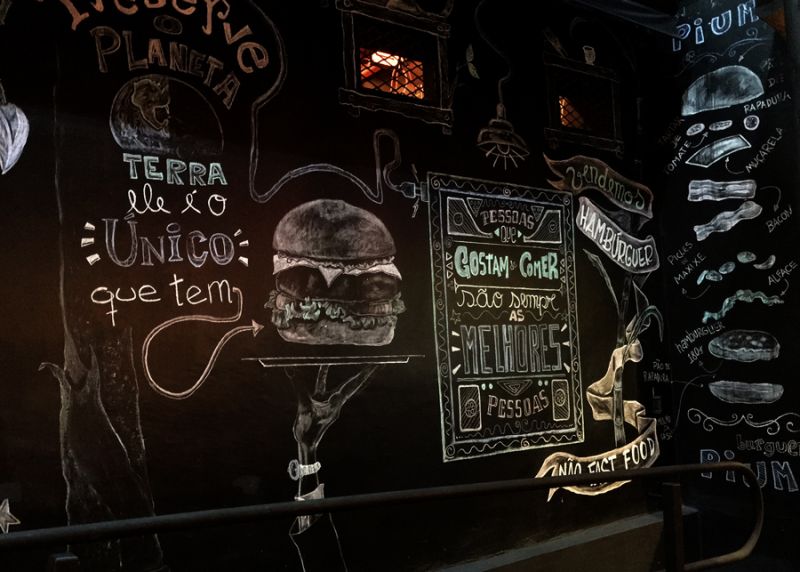 Preserve
o
PLANETA
TERRA
ele é o
ÚNICO
que tem
PESSOAS
que
GOSTAM de COMER
são sempre
AS
MELHORES
PESSOAS
Vendemos
HAMBÚRGUER
NÃO FAST FOOD
PIUM
PÃO
DE
RAPADURA
TOMATE
MUÇARELA
BACON
PICLES
MAXIXE
ALFACE
hAMBÚRGUER
180g
PÃO DE
RAPADURA
burguer
PIUM